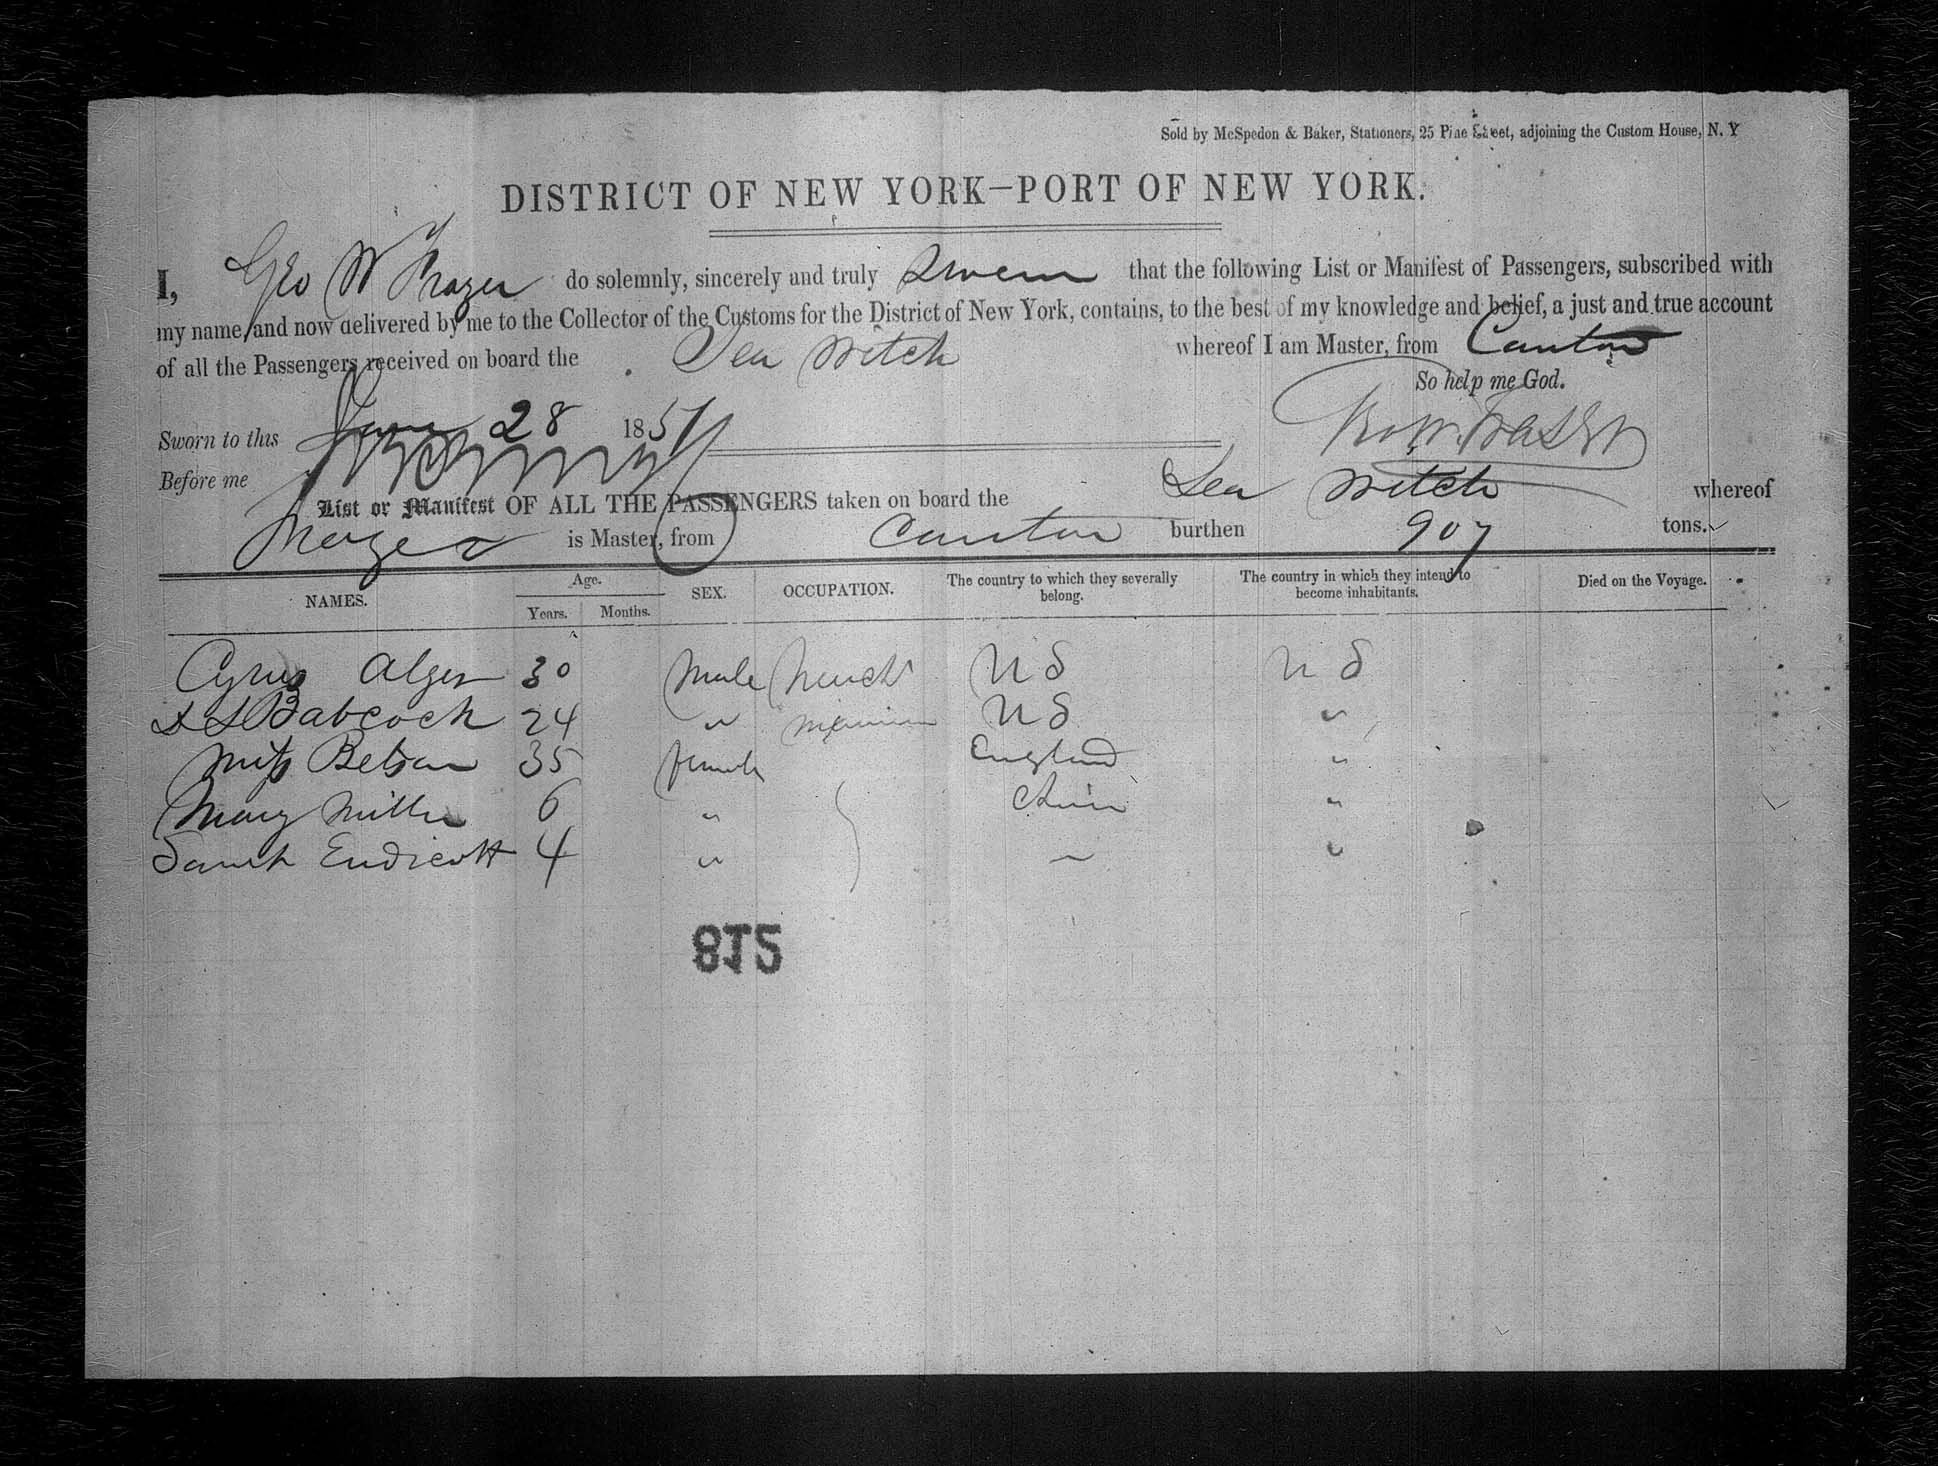 Sold by McSpedon & Baker, Stationers, 25 Pine Street, adjoining the Custom House, N. Y
DISTRICT OF NEW YORK—PORT OF NEW YORK.
I, Geo W Frazer do solemnly, sincerely and truly Swear that the following List or Manifest of Passengers, subscribed with
my name, and now delivered by me to the Collector of the Customs for the District of New York, contains, to the best of my knowledge and belief, a just and true account
of all the Passengers received on board the Sea Witch whereof I am Master, from Canton
So help me God.
Sworn to this 28 1851
Geo. W. Fraser
Before me
List or Manifest OF ALL THE PASSENGERS taken on board the Sea Witch whereof
Frazer is Master, from Canton burthen 907 tons.
NAMES. Age. Years. Months. SEX. OCCUPATION. The country to which they severally belong. The country in which they intend to become inhabitants. Died on the Voyage.
Cyrus Alger 30 Male Mercht U S U S
Babcock 24 " U S "
35 female England "
Mary Miller 6 " China "
Sarah Endicott 4 " "
8152